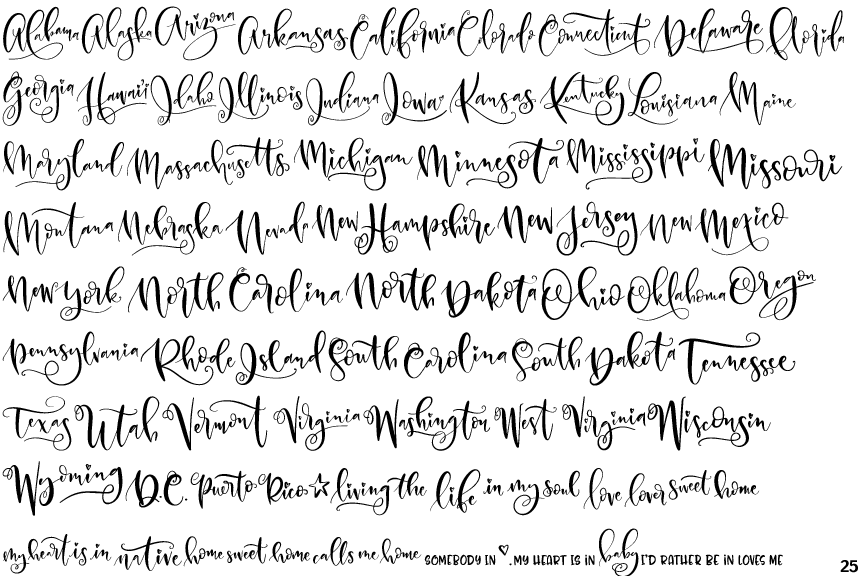 Alabama Alaska Arizona Arkansas California Colorado Connecticut Delaware Florida
Georgia Hawai'i Idaho Illinois Indiana Iowa Kansas Kentucky Louisiana Maine
Maryland Massachusetts Michigan Minnesota Mississippi Missouri
Montana Nebraska Nevada New Hampshire New Jersey New Mexico
New York North Carolina North Dakota Ohio Oklahoma Oregon
Pennsylvania Rhode Island South Carolina South Dakota Tennessee
Texas Utah Vermont Virginia Washington West Virginia Wisconsin
Wyoming D.C. Puerto Rico ☆ living the life in my soul love lover sweet home
my heart is in native home sweet home calls me home SOMEBODY IN ♡. MY HEART IS IN baby I'D RATHER BE IN LOVES ME
25